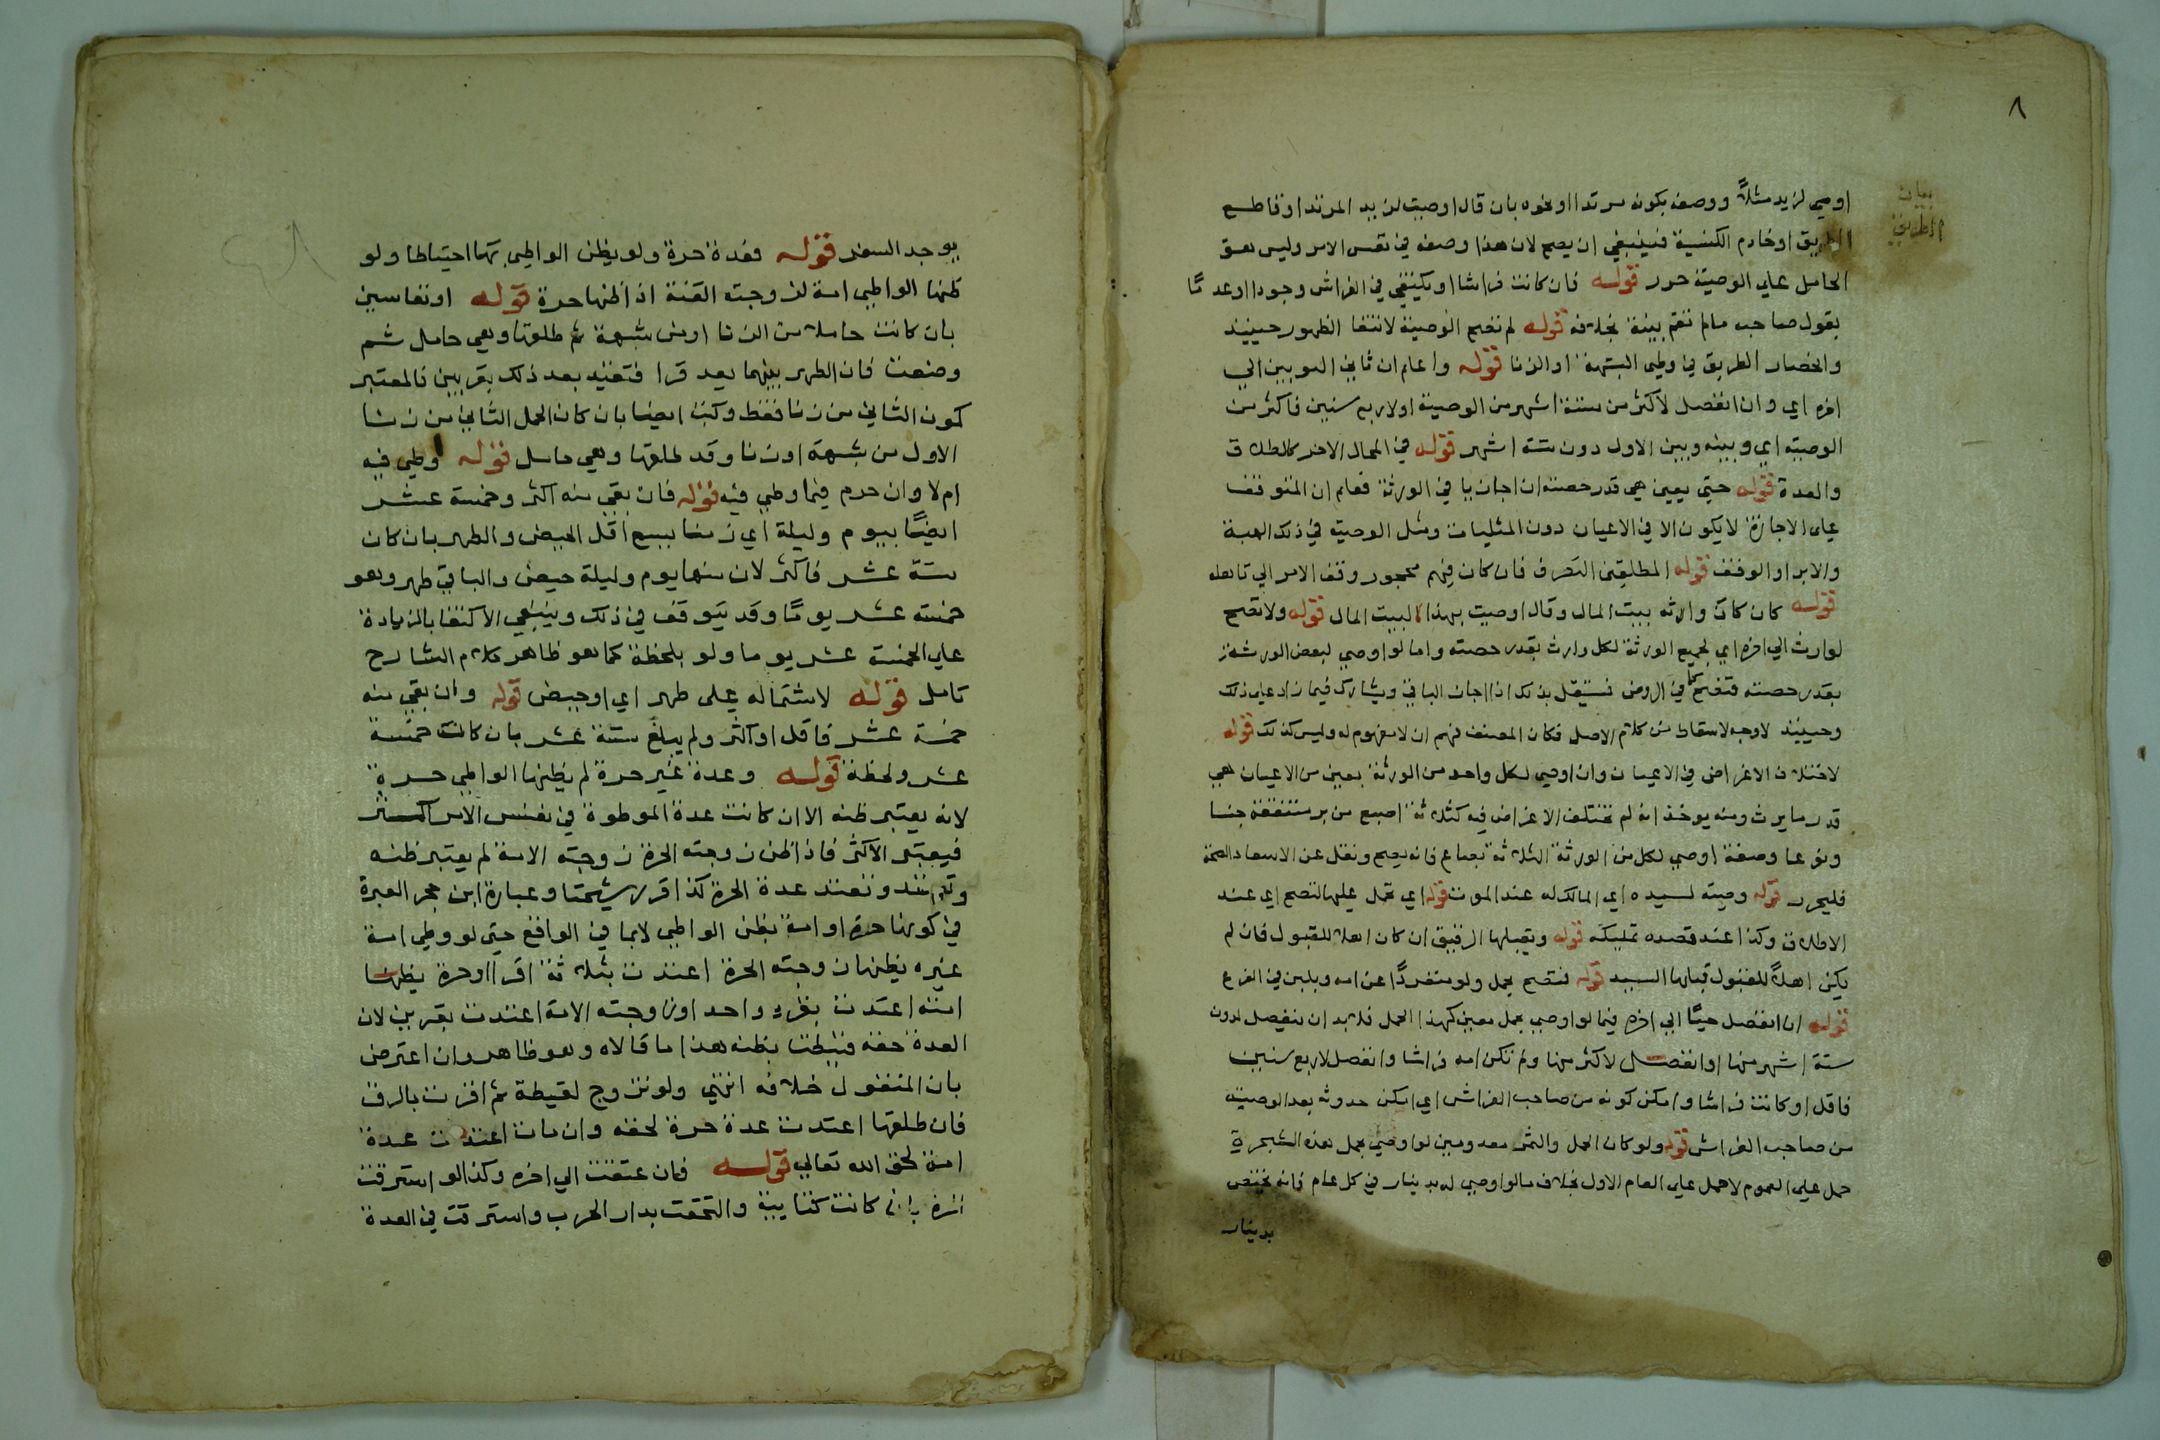 ٨
بيان
الطريق
اوصي لزيد مثلاً ووصفه بكونه مرتدا او نحوه بان قال اوصيت لزيد المرتد او قاطع
الطريق او خادم الكنيسة فينبغي ان يصح لان هذا وصفه في نفس الامر وليس هو
الحامل علي الوصية حرر قوله فان كانت فراشا او يكتفي في الفراش وجودا او عدمًا
بقول صاحبه مالم تقم بينة بخلافه قوله لم تصح الوصية لانتفا الظهور حينيذ
وانحصار الطريق في وطي الشبهة او الزنا قوله واعلم ان ثاني التوءمين الي
اخره اي وان انفصل لاكثر من ستة اشهر من الوصية او لاربع سنين فاكثر من
الوصية اي وبينه وبين الاول دون ستة اشهر قوله في المحال الاخر كالطلاق
والعدة قوله حتي يعين هي قدر حصته ان اجاز باقي الورثة فعلم ان المتوقف
علي الاجازة لا يكون الا في الاعيان دون المثليات ومثل الوصية في ذلك الهبة
والابرا والوقف قوله المطلقين التصرف فان كان فيهم محجور وقف الامر الي تاهله
قوله كان كان وارثه بيت المال وقال اوصيت بهذا لبيت المال قوله ولا تصح
لوارث الي اخره اي لجميع الورثة لكل وارث بقدر حصته واما لو اوصي لبعض الورثة
بقدر حصته فتصح كما في الروض فيستقل بذلك اذا اجاز الباقي ويشارك فيما زاد علي ذلك
وحينيذ لا وجه لاسقاط من كلام الاصل فكان المصنف فهم ان لا مفهوم له وليس كذلك قوله
لاختلاف الاغراض في الاعيان وان اوصي لكل واحد من الورثة بعين من الاعيان هي
قدر ما يرث ومنه يوخذ انه لم تختلف الاغراض فيه كثلاثة اصبع من بر متفقة جنسا
ونوعا وصفة اوصي لكل من الورثة الثلاثة بصاع فانه يصح ونقل عن الاسعاد الصحة
فليحرر قوله وصيته لسيده اي المالك له عند الموت قوله اي تحمل عليها لتصح اي عند
الاطلاق وكذا عند قصده تمليكه قوله ويقبلها الرقيق ان كان اهلا للقبول فان لم
يكن اهلاً للقبول قبلها السيد قوله فتصح بحمل ولو منفردًا عن امه وبلبن في الضرع
قوله ان انفصل حيًا الي اخره فيما لو اوصي بحمل معين كهذا الحمل فلا بد ان ينفصل لدون
ستة اشهر منها او انفصل لاكثر منها ولم تكن امه فراشا وانفصل لاربع سنين
فاقل او كانت فراشا وامكن كونه من صاحب الفراش اي امكن حدوثه بعد الوصية
من صاحب الفراش قوله ولو كان الحمل والثمر معدومين لو اوصي بحمل هذه الشجرة
حمل علي العموم لا حمل علي العام الاول بخلاف ما لو اوصي له بدينار في كل عام فانه يختص
بدينار
يوجد السفر قوله فعدة حرة ولو يظن الواطي بها احتياطا ولو
ظنها الواطي امة لزوجته القنة اذ اظنها حرة قوله او نفاسين
بان كانت حاملا من الزنا او من شبهة ثم طلقها وهي حامل ثم
وضعت فان الطهر بينهما يعد قرا فتعتد بعد ذلك بقرءين فالمعتبر
كون الثاني من زنا فقط وكتب ايضا بان كان الحمل الثاني من زنا
الاول من شبهة او زنا وقد طلقها وهي حامل قوله وطي فيه
ام لا وان حرم فيما وطي فيه قوله فان بقي منه اكثر وخمسة عشر
ايضًا بيوم وليلة اي زمنا يسع اقل الحيض والطهر بان كان
ستة عشر فاكثر لان منها يوم وليلة حيض والباقي طهر وهو
خمسة عشر يومًا وقد يتوقف في ذلك وينبغي الاكتفا بالزيادة
علي الخمسة عشر يوما ولو بلحظة كما هو ظاهر كلام الشارح
كامل قوله لاشتماله علي طهر اي او حيض قوله وان بقي منه
خمسة عشر فاقل او اكثر ولم يبلغ ستة عشر بان كانت خمسة
عشر ولحظة قوله وعدة غير حرة لم يظنها الواطي حرة
لانه يعتبر ظنه الا ان كانت عدة الموطوة في نفس الامر اكثر
فيعتبر الاكثر فاذا ظن زوجته الحرة زوجته الامة لم يعتبر ظنه
وتعتد عدة الحرة كذا قرر شيخنا وعبارة ابن حجر العبرة
في كونها حرة او امة بظن الواطي لا بما في الواقع حتي لو وطي امة
غيره يظنها زوجته الحرة اعتدت بثلاثة اقرا او حرة يظنها
امته اعتدت بقرء واحد او زوجته الامة اعتدت بقرءين لان
العدة حقه فنيطت بظنه هذا ما قالاه وهو ظاهر وان اعترض
بان المنقول خلافه انتهي ولو تزوج لقيطة ثم اقرت بالرق
فان طلقها اعتدت عدة حرة لحقه وان مات اعتدت عدة
امة لحق الله تعالي قوله فان عتقت الي اخره وكذا لو استرقت
كانت كتابية والتحقت بدار الحرب واسترقت في العدة